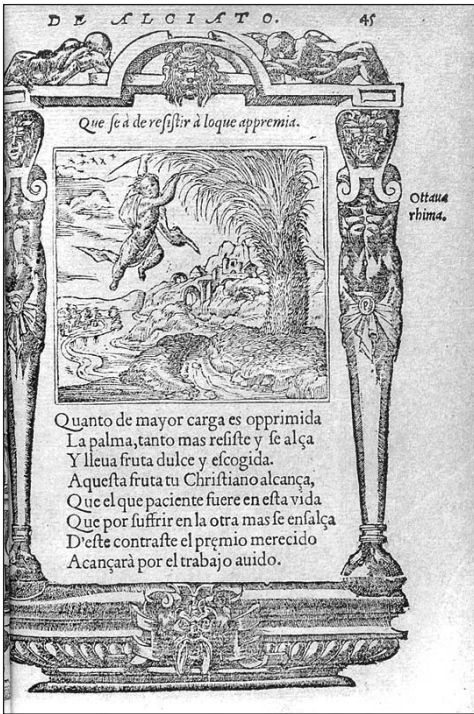 DE ALCIATO. 45
Que se à de resistir à loque appremia.
Ottaua
rhima.
Quanto de mayor carga es opprimida
La palma, tanto mas resiste y se alça
Y lleua fruta dulce y escogida.
Aquesta fruta tu Christiano alcança,
Que el que paciente fuere en esta vida
Que por suffrir en la otra mas se ensalça
D'este contraste el premio merecido
Acançarà por el trabajo auido.